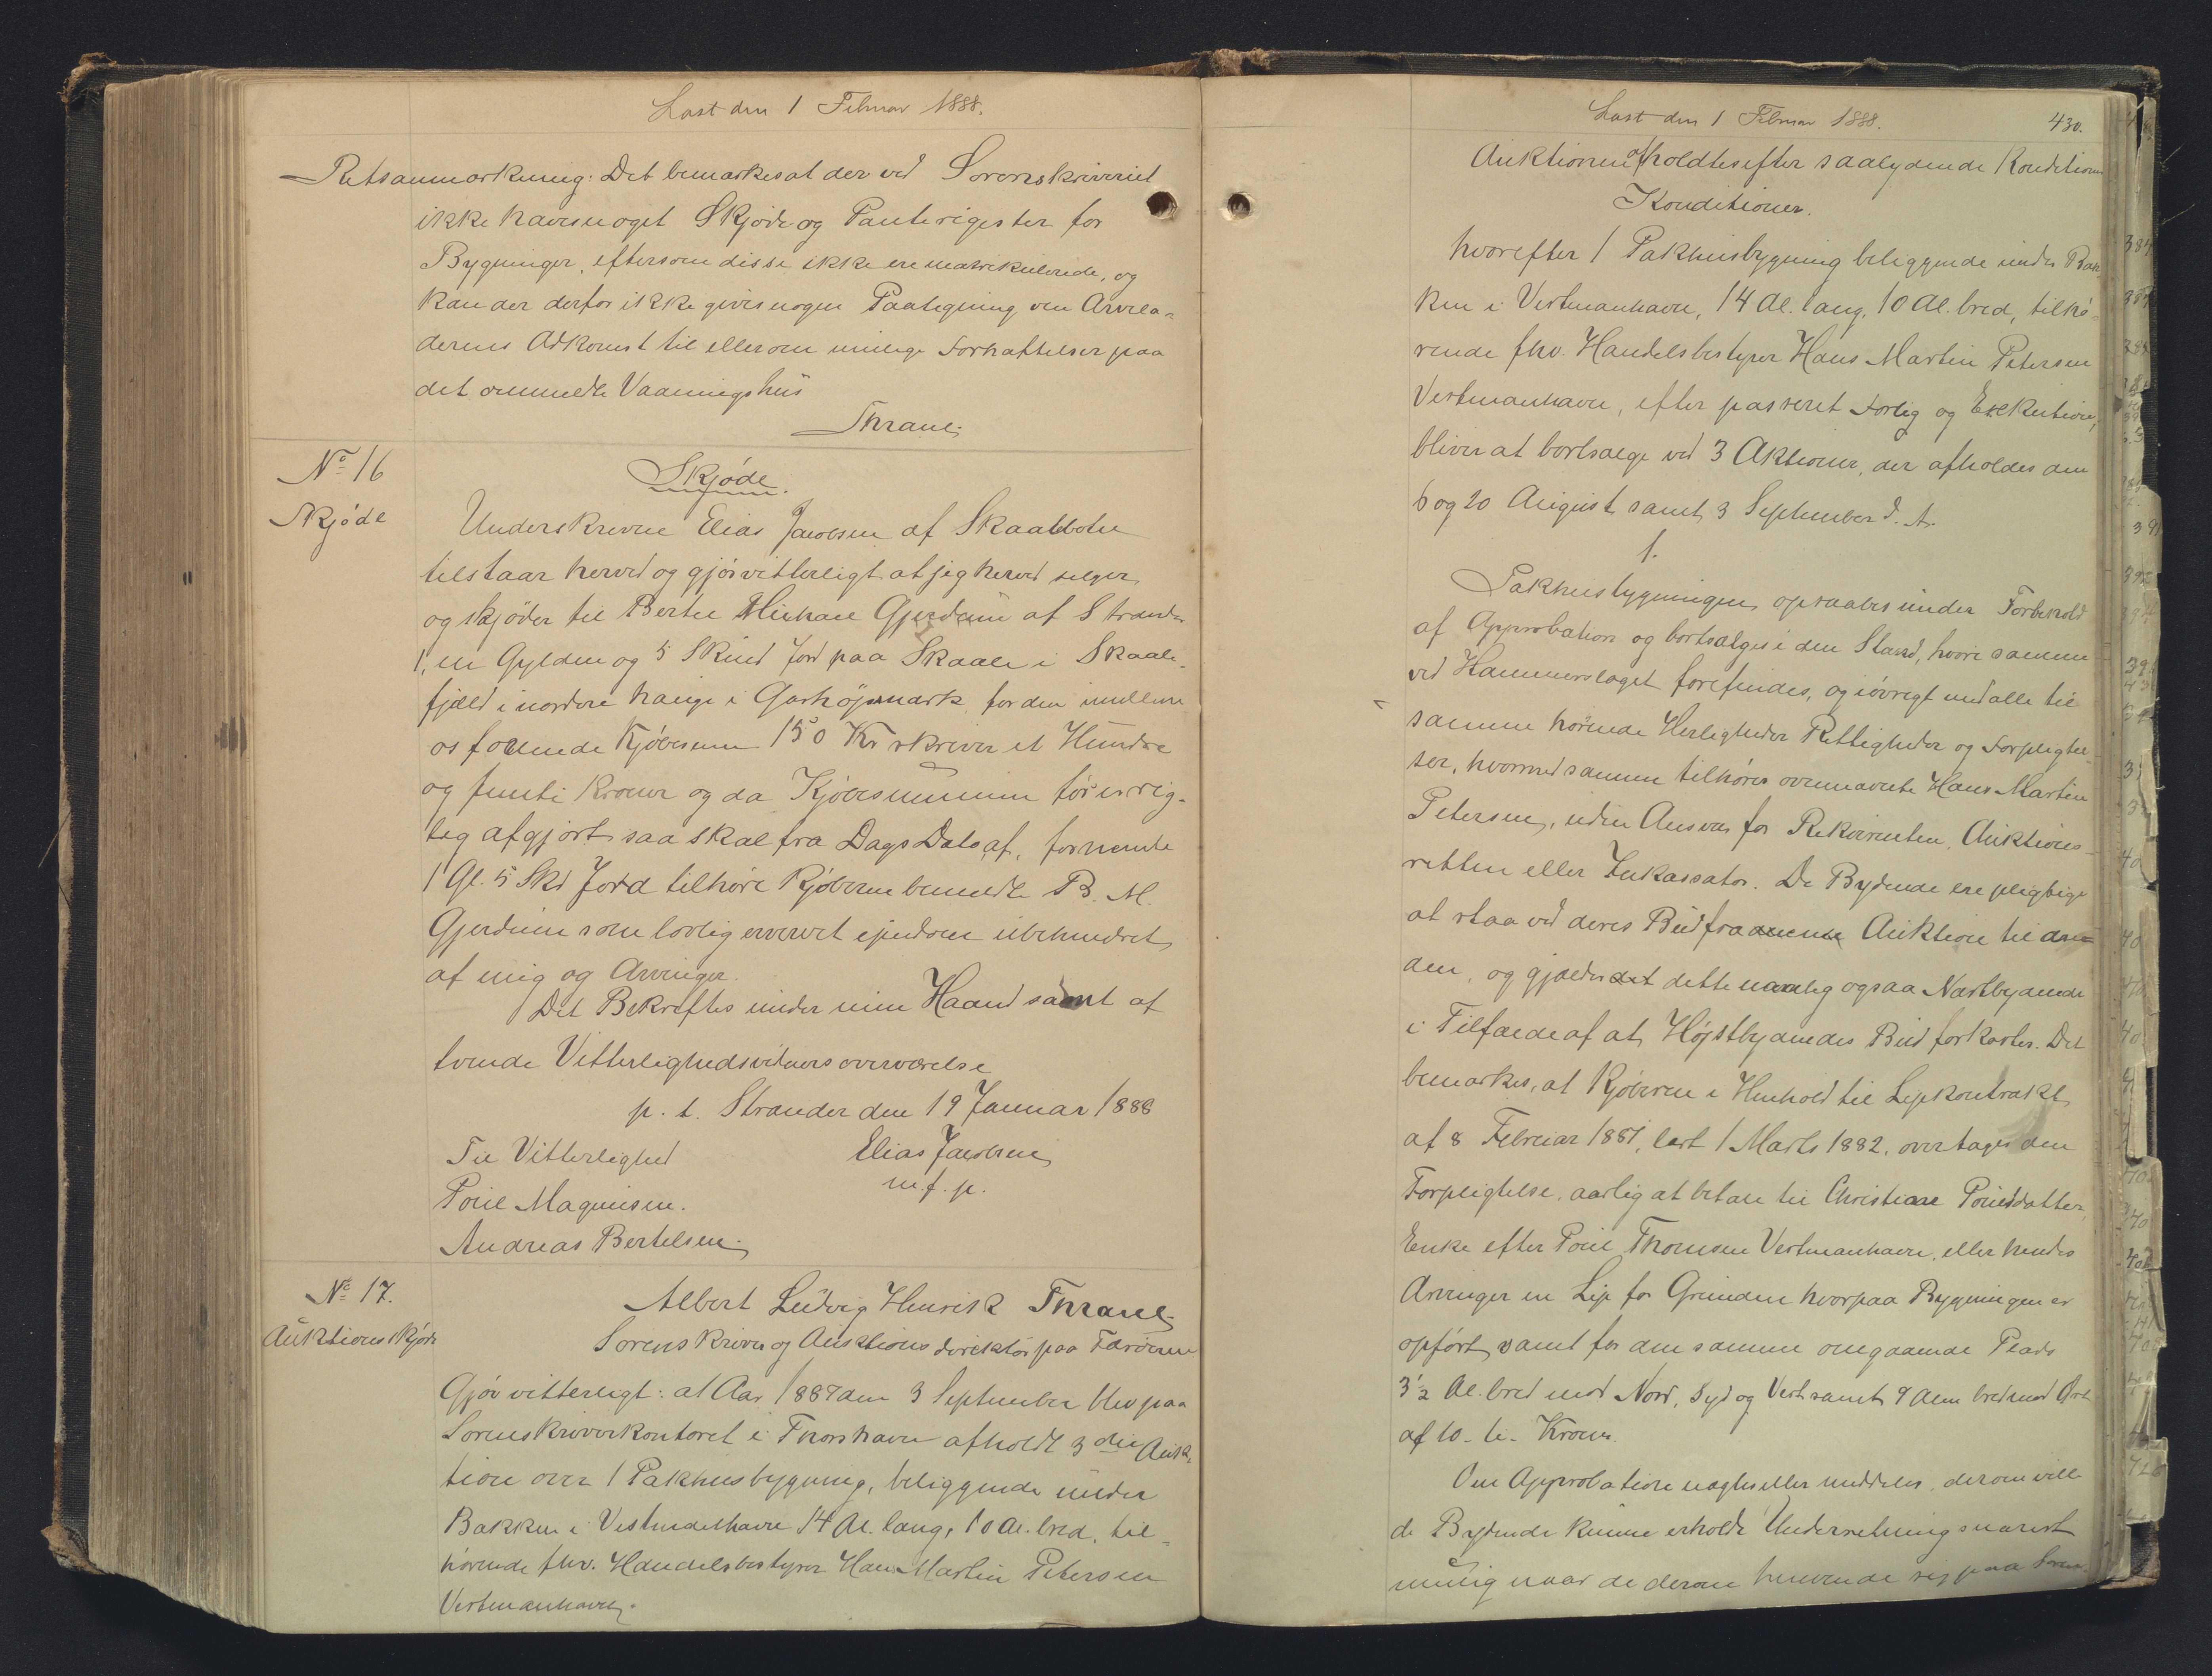 Læst den 1 Februar 1888.
Retsanmærkning: Det bemærkes at der ved Sorenskriveriet
ikke haves noget Skjøde og Panteregister for
Bygninger, eftersom disse ikke ere matrikulerede, og
kan der derfor ikke gives nogen Paategning om Arvela-
derens Adkomst til eller om mulige Forhæftelser paa
det ommeldte Vaaningshus
Thrane.
No 16
Skjøde
Skjøde.
Underskrevne Elias Jacobsen af Skaalebotn
tilstaar herved og gjør vitterligt at jeg herved selger
og skjøder til Bertel Michael Gjerdum af Strander
1, en Gylden og 5 Skind Jord paa Skaale i Skaale-
fjæld i nordere hauge i Garhøjsmark for den imellem
os formede Kjøbesum 150 Kr skriver et Hundre
og femti Kroner og da Kjøbesummen før er rig-
tig afgjort saa skal fra Dags Dato af, fornemte
1 Gl. 5 Skd Jord tilhøre Kjøberen bemeldte B. M.
Gjerdum som lovlig ervervet ejendom ubehindret
af mig og Arvinger.
Det Bekræftes under min Haand samt af
tvende Vitterlighedsvidners overværelse
p. t. Strander den 19 Januar 1888
Til Vitterlighed
Elias Jacobsen
m. f. p.
Poul Magnusen.
Andreas Bertelsen.
No 17.
Auktionsskjøde
Albert Ludvig Henrik Thrane
Sorenskriver og Auktionsdirektør paa Færøerne
Gjør vitterligt: at Aar 1887 den 3 September blev paa
Sorenskriverkontoret i Thorshavn afholdt 3die Auk-
tion over 1 Pakhusbygning, beliggende under
Bakken i Vestmanhavn 14 Al. lang, 10 Al. bred, til-
hørende fhv. Handelsbestyrer Hans Martin Petersen
Vestmanhavn.
Læst den 1 Februar 1888.
430.
Auktionen afholdtes efter saalydende Konditioner
Konditioner.
hvorefter 1 Pakhusbygning beliggende under Bak-
ken i Vestmanhavn, 14 Al. lang, 10 Al. bred, tilhø-
rende fhv. Handelsbestyrer Hans Martin Petersen
Vestmanhavn, efter passeret Forlig og Exekution,
bliver at bortsælge ved 3 Aktioner, der afholdes den
6 og 20 August samt 3 September d. A.
1.
Pakhusbygningen opraabes under Forbehold
af Approbation og bortsælges i den Stand, hvori samme
ved Hammerslaget forefindes, og iøvrigt med alle til
samme hørende Herligheder Rettigheder og Forpligtel-
ser, hvormed samme tilhører ovennævnte Hans Martin
Petersen, uden Ansvar for Rekvirenten, Auktions-
retten eller Inkassator. De Bydende ere pligtige
at staa ved deres Bud fra Auktion til an-
den, og gjælder dette navnlig ogsaa Næstbydende
i Tilfælde af at Højstbydendes Bud forkastes. Det
bemærkes, at Kjøberen i Henhold til Lejekontrakt
af 8 Februar 1881, læst 1 Marts 1882, overtager den
Forpligtelse, aarlig at betale til Christiane Poulsdatter,
Enke efter Poul Thomsen Vestmanhavn, eller hendes
Arvinger en Leje for Grunden hvorpaa Bygningen er
opført, samt for den samme omgaaende Plads
3½ Al. bred mod Nord, Syd og Vest samt 9 Alen bred mod Øst
af 10 - ti - Kroner.
Om Approbation nægtes eller meddeles, derom ville
de Bydende kunne erholde Underretning snarest
mulig naar de derom henvende sig paa Soren-